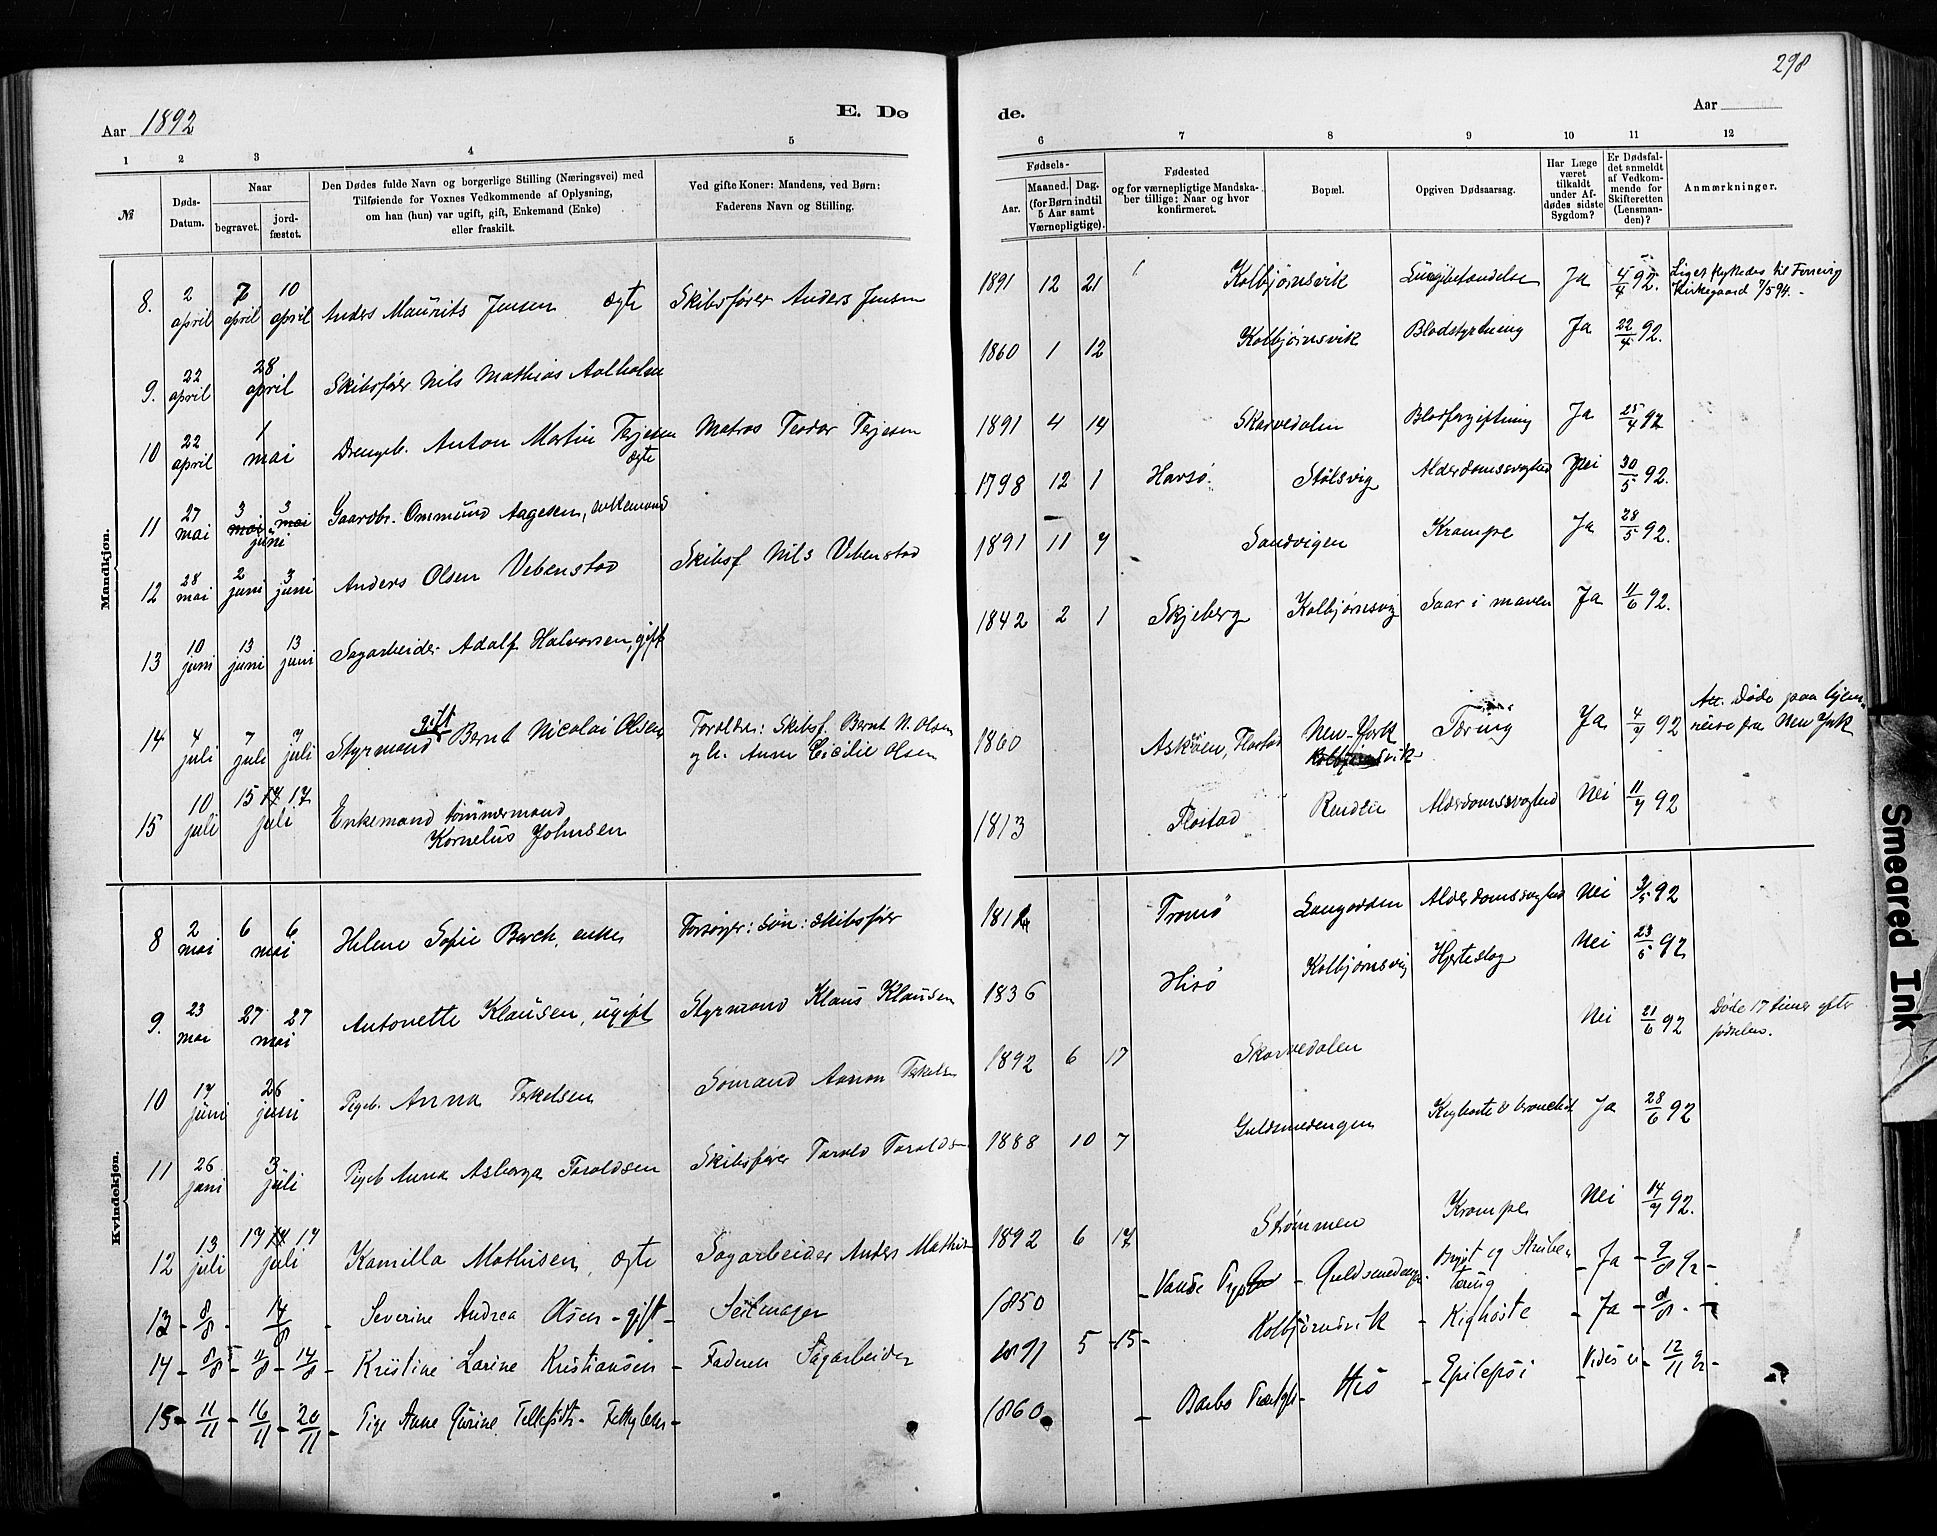 298
Aar 1892
E. Dø
de.
Aar
1 2 3 4 5
6 7 8 9 10 11 12
№
Døds-
Datum.
Naar
begravet.
jord-
fæstet.
Den Dødes fulde Navn og borgerlige Stilling (Næringsvei) med
Tilføiende for Voxnes Vedkommende af Oplysning,
om han (hun) var ugift, gift, Enkemand (Enke)
eller fraskilt.
Ved gifte Koner: Mandens, ved Børn:
Faderens Navn og Stilling.
Fødsels-
Aar.
Maaned.
Dag.
(for Børn indtil
5 Aar samt
Værnepligtige).
Fødested
og for værnepligtige Mandska-
ber tillige: Naar og hvor
konfirmeret.
Bopæl.
Opgiven Dødsaarsag.
Har Læge
været
tilkaldt
under Af-
dødes sidste
Sygdom?
Er Dødsfal-
det anmeldt
af Vedkom-
mende for
Skifteretten
(Lensman-
den)?
Anmærkninger.
Mandkjøn.
8. 2 april 7 april 10 april Anders Maurits Jensen ægte Skibsfører Anders Jensen 1891 12 21 Kolbjørnsvik Lungebetændelse Ja 4/4 92. Liget flyttedes til Færevig
Kirkegaard 7/5 94.
9. 22 april 28 april Skibsfører Nils Mathias Aalholm 1860 1 12 Kolbjørnsvik Blodstyrtning Ja 22/4 92.
10 22 april 1 mai Drengeb. Anton Martin Terjesen ægte Matros Teodor Terjesen 1891 4 14 Skarvedalen Blodforgiftning Ja 25/4 92
11 27 mai 3 mai 3 mai juni Gaardbr. Ommund Aagesen, enkemand 1798 12 1 Havsø. Stølsvig Alderdomssvaghed Nei 30/5 92.
12 28 mai 2 juni 3 juni Anders Olsen Vebenstad Skibsf Nils Vebenstad 1891 11 7 Sandvigen Krampe Ja 28/5 92.
13 10 juni 13 juni 13 juni Sagarbeider Adolf Halvorsen, gift 1842 2 1 Skjeberg Kolbjørnsvig Saar i maven Ja 11/6 92.
14 4 juli 7 juli 7 juli Styrmand gift Bernt Nicolai Olsen Forældre: Skibsf. Bernt N. Olsen
og h. Anne Cecilie Olsen 1860 Askøen, Flostad New-York Kolbjørnsvik Tæring Ja 4/7 92 Døde paa hjem-
reise fra New York
15 10 juli 15 17 17 juli Enkemand tømmermand
Kornelius Johnsen 1813 Flostad Revdal Alderdomssvaghed Nei 11/7 92
Kvindekjøn.
8 2 mai 6 6 mai Helene Sofie Berch, enke Forsørger: søn: skibsfører 1812 Tromø Langodden Alderdomssvaghed Nei 3/5 92
9. 23 mai 27 27 mai Antonette Klausen, ugift Styrmand Klaus Klausen 1836 Hisø Kolbjørnsvig Hjerteslag Nei 23/5 92
10 17 juni 26 juni Pigeb. Anna Terkelsen Sømand Aanon Terkelsen 1892 6 17 Skarvedalen Nei 21/6 92 Døde 17 timer efter
fødselen.
11 26 juni 3 juli Pigeb Anna Asborga Taraldsen Skibsfører Tarald Taralds- 1888 10 7 Guldsmedengen Kighoste & bronchit Ja 28/6 92
12 13 juli 17 17 juli Kamilla Mathisen, ægte Sagarbeider Anders Mathis- 1892 6 17 Strømmen Krampe Nei 14/7 92.
13 - 8/8 - 14/8 - Severine Andrea Olsen - gift - Seilmager 1850 - Guldsmedengen Bryst og Strube-
tæring - Ja - 9/8 92 -
14 - 8/8 - 11/8 - 14/8 - Kristine Larine Kristiansen - Faderen Sagarbeider 1891 5 - 15 - Kolbjørnsvik - Kighoste - Ja - 9/8 -
15 - 11/11 - 16/11 - 20/11 - Pige Anne Gurine Tellefsdtr. 1860 - Barbo - His - Epilepsi - Vides ei - 12/11 92 -
Smeared Ink